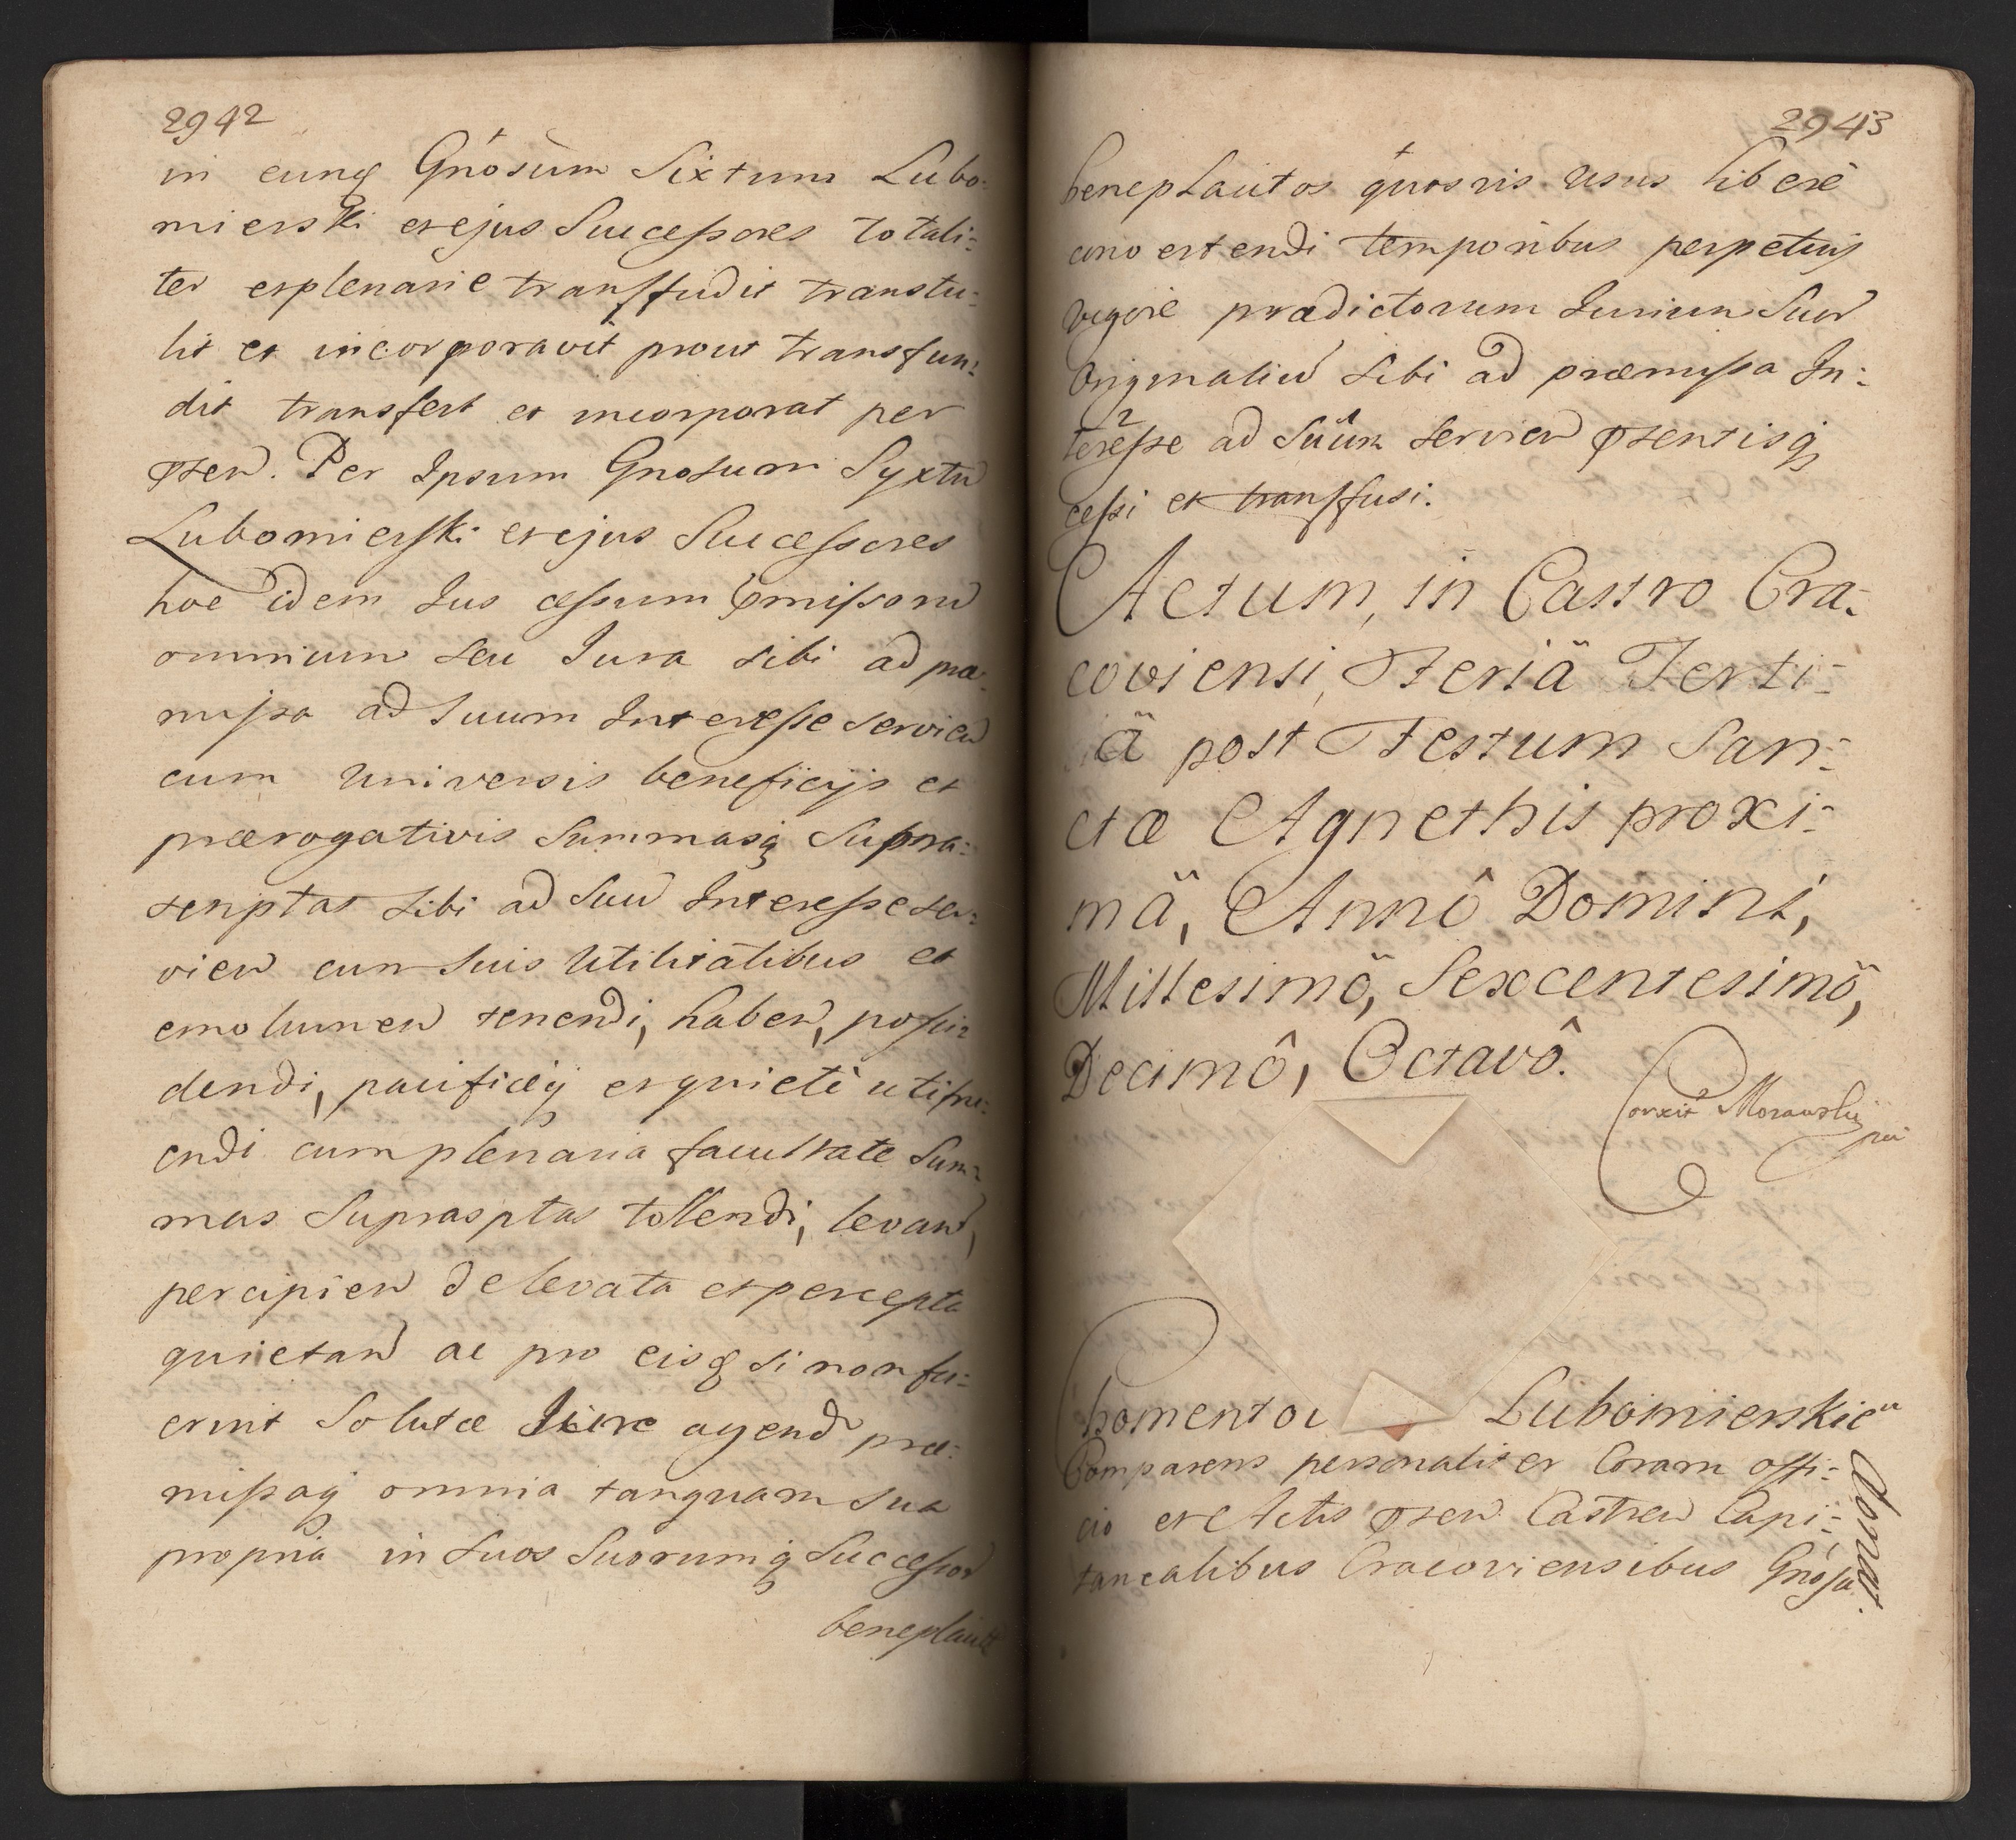 2942
in eunq Gnosum Sixtum Lubo-
mierski et ejus Successores totali=
ter et plenarie transfudit transtu=
lit et incorporavit prout transfun=
dit transfert et incorporat per
psen. Per Ipsum Gnosum Syxtu
Lubomierski et ejus Successores
hoc idem Jus cessum pmissoru
omnium seu Jura sibi ad præ-
missa ad Suum Interesse servien
cum universis beneficijs et
prærogativis Summasq Supra=
scriptas sibi ad Suu Interesse ser=
vien cum Suis Utilitatibus et
emolumen tenendi, haben, possi=
dendi, pacificeq et quietè utifru=
endi cum plenaria facultate Sum=
mas Suprasptas tollendi, levan,
percipien de levata et percepta
quietan ac pro eisq si non fu=
erint Solutæ Jure agend præ=
missaq omnia tanquam sua
propria in Suos Suorumq Successor
beneplacit
2943
beneplacitos quosvis usus liberè
convertendi temporibus perpetuis
vigore prædictorum Jurium Suor
Originaliu Sibi ad præmissa In=
teresse ad Suum servien psentisq
cessi et transfusi.
Actum, in Castro Cra=
coviensi, Feriä Terti=
ä post Festum San=
ctæ Agnethis proxi=
mä, Annô Domini,
Millesimö, Sexcentesimö,
Decimô, Octavô.
Correxit Morawskij
mp
Chomentow Lubomierskie
Comparens personaliter Coram offi=
cio et Actis psen Castren Capi=
tanealibus Cracoviensibus Gnosa